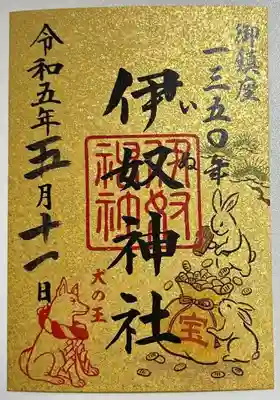 御鎮座
一三五〇年
伊奴神社
いぬ
令和五年五月十一日
犬の王
宝